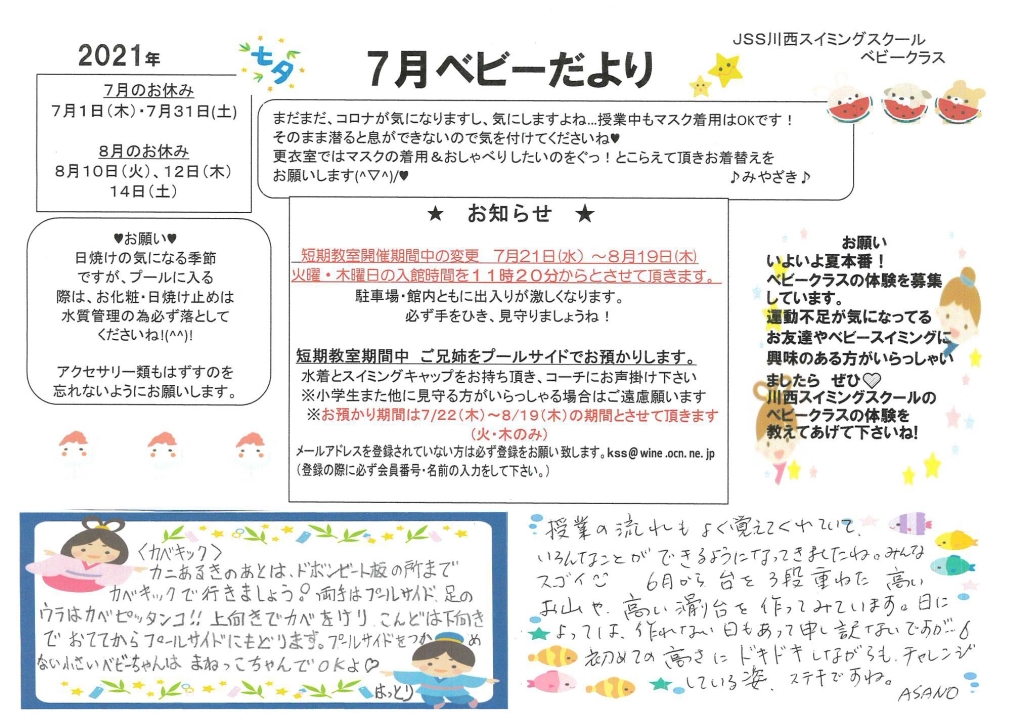 2021年
七夕
7月ベビーだより
JSS川西スイミングスクール
ベビークラス
7月のお休み
7月1日(木)・7月31日(土)
8月のお休み
8月10日(火)、12日(木)
14日(土)
まだまだ、コロナが気になりますし、気にしますよね…授業中もマスク着用はOKです！
そのまま潜ると息ができないので気を付けてくださいね♥
更衣室ではマスクの着用＆おしゃべりしたいのをぐっ！とこらえて頂きお着替えを
お願いします(^▽^)/♥
♪みやざき♪
♥お願い♥
日焼けの気になる季節
ですが、プールに入る
際は、お化粧・日焼け止めは
水質管理の為必ず落として
くださいね!(^^)!
アクセサリー類もはずすのを
忘れないようにお願いします。
★　お知らせ　★
短期教室開催期間中の変更　7月21日(水)　～8月19日(木)
火曜・木曜日の入館時間を１１時２０分からとさせて頂きます。
駐車場・館内ともに出入りが激しくなります。
必ず手をひき、見守りましょうね！
短期教室期間中　ご兄姉をプールサイドでお預かりします。
水着とスイミングキャップをお持ち頂き、コーチにお声掛け下さい
※小学生また他に見守る方がいらっしゃる場合はご遠慮願います
※お預かり期間は7/22(木)～8/19(木)の期間とさせて頂きます
(火・木のみ)
メールアドレスを登録されていない方は必ず登録をお願い致します。kss@wine.ocn.ne.jp
(登録の際に必ず会員番号・名前の入力をして下さい。)
お願い
いよいよ夏本番！
ベビークラスの体験を募集
しています。
運動不足が気になってる
お友達やベビースイミングに
興味のある方がいらっしゃい
ましたら　ぜひ♡
川西スイミングスクールの
ベビークラスの体験を
教えてあげて下さいね!
〈カベキック〉
カニあるきのあとは、ドボンビート板の所まで
カベキックで行きましょう！両手はプールサイド、足の
ウラはカベピッタンコ!!上向きでカベをけり、こんどは下向き
で おててからプールサイドにもどります。プールサイドをつかめ
ない小さいベビーちゃんは まねっこちゃんでOKよ♡
はっとり
授業の流れも よく覚えてくれていて、
いろんなことが できるようになってきましたね。みんな
スゴイ☺ 6月から 台を 3段 重ねた 高い
お山や、高い滑り台を 作ってみています。日に
よっては、作れない日もあって申し訳ないですが…
初めての高さに ドキドキしながらも、チャレンジ
している姿、ステキですね。
ASANO